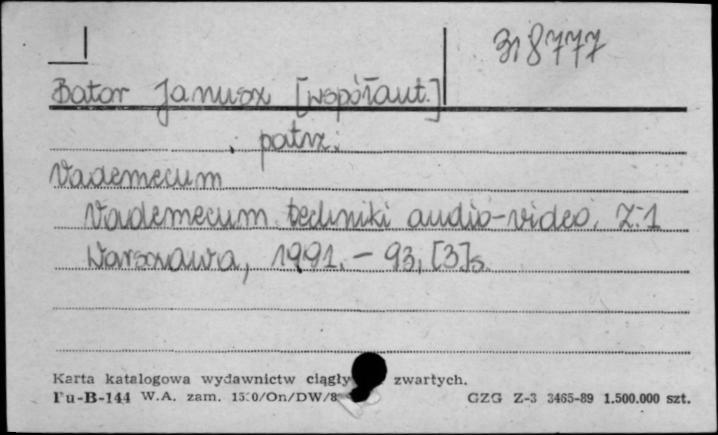 318777
Bator Janusz [współaut.]
patrz:
Vademecum
Vademecum techniki audio-video. Z. 1
Warszawa, 1991. - 93, [3] s.
Karta katalogowa wydawnictw ciągły zwartych.
Pu-B-144 W.A. zam. 1530/On/DW/8 GZG Z-3 3465-89 1.500.000 szt.